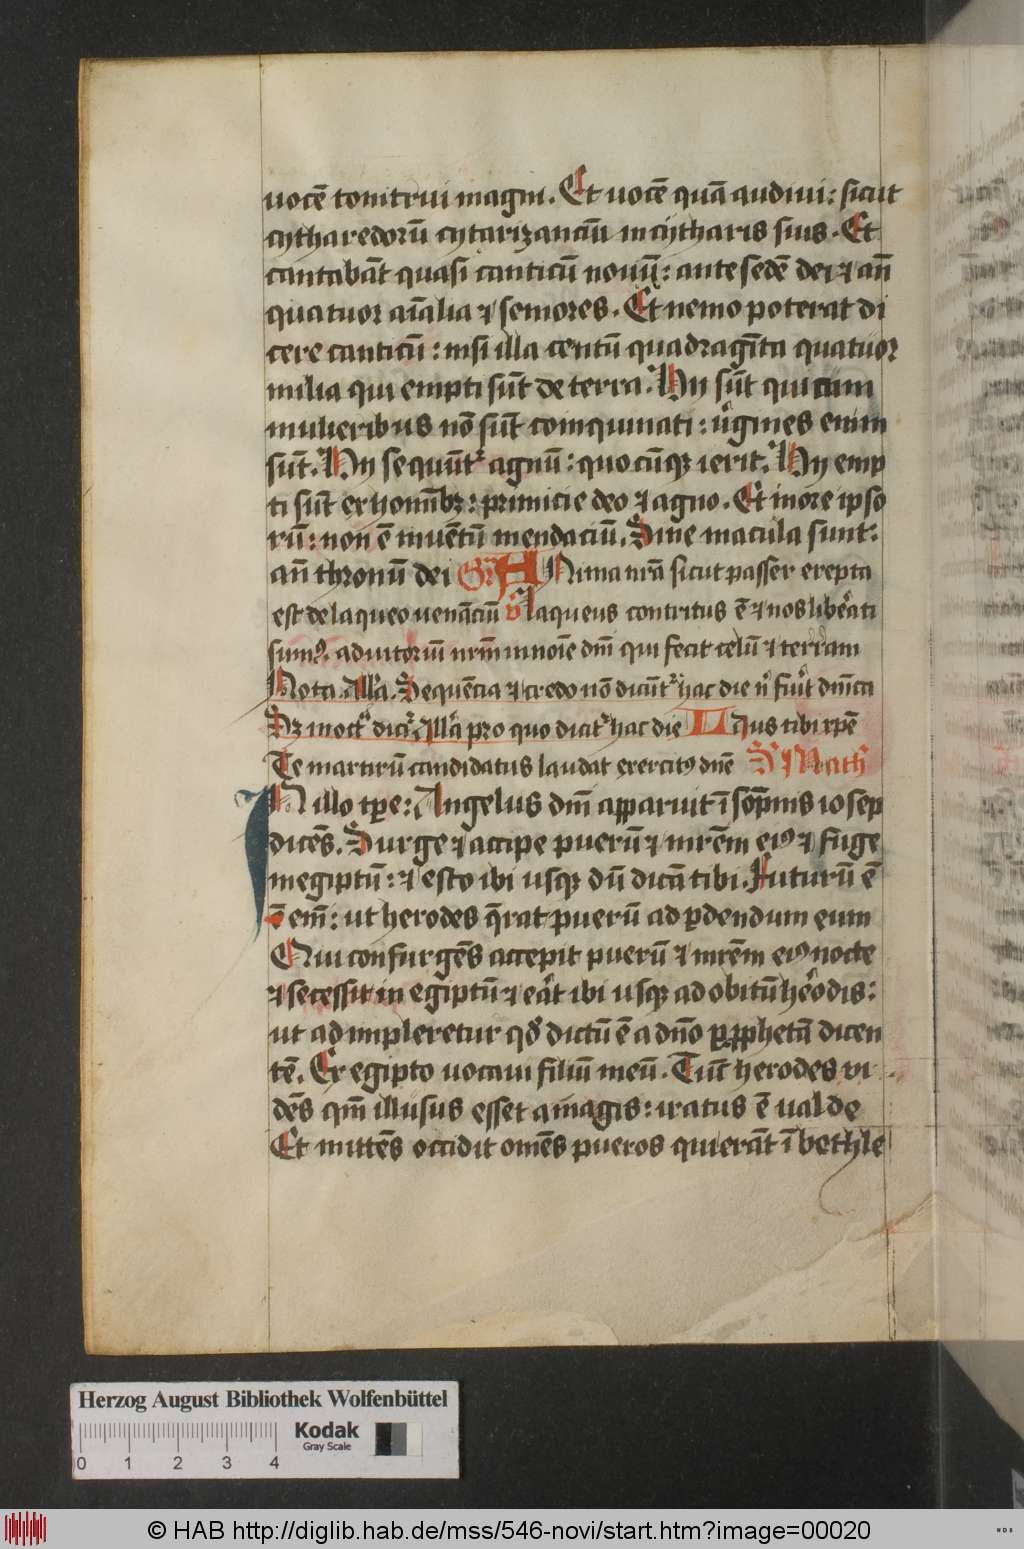 uocē tonitrui magni. Et uocē quā audiui: sicut
cytharedorū cytarizanciū in cytharis suis. Et
cantabāt quasi canticū nouū: ante sedē dei ⁊ an̄
quatuor aīalia ⁊ seniores. Et nemo poterat di
cere canticū: nisi illa centū quadragīta quatuor
milia qui empti sūt de terra. Hy sūt qui cum
mulieribus nō sūt coinquinati: v͛gines enim
sūt. Hy sequūt͛ agnū: quocūqꝫ ierit. Hy emp
ti sūt ex homībꝫ: primicie deo ⁊ agno. Et in ore ipso
rū: non ē inuētū mendaciū. Sine macula sunt.
an̄ thronū dei Gr̄ ANima nr̄a sicut passer erepta
est de laqueo uenāciū v̄ laqueus contritus ē ⁊ nos libe͛ati
sumꝰ. adiutoriū nr̄m in noīe dn̄i qui fecit celū ⁊ terram
Nota. All͛a. Sequēcia ⁊ credo nō dicūt͛ hac die n͛ fu͛it dn̄ica
Sꝫ dicit͛ All͛a pro quo dicit͛ hac die LAus tibi xp̄e
Te martirū candidatus laudat exercitꝰ dn̄e S Math͛
IN illo tꝑe: Angelus dn̄i apparuit ī sōpnis iosep
dicēs. Surge ⁊ accipe puerū ⁊ mr̄em eiꝰ ⁊ fuge
in egiptū: ⁊ esto ibi usqꝫ dū dicā tibi. Futurū ē
ē em̄: ut herodes q̄rat puerū ad ꝑdendum eum
Qui consurgēs accepit puerū ⁊ mr̄em eiꝰ nocte
⁊ secessit in egiptū ⁊ e͛at ibi usqꝫ ad obitū he͛odis:
ut adimpleretur qđ dictū ē a dn̄o ꝑ ꝓphetā dicen
tē. Ex egipto uocaui filiū meū. Tūc herodes vi
dēs qm̄ illusus esset a magis: iratus ē ualde
Et mittēs occidit om̄es pueros qui erāt ī bethle
Herzog August Bibliothek Wolfenbüttel
Kodak
Gray Scale
0 1 2 3 4
© HAB http://diglib.hab.de/mss/546-novi/start.htm?image=00020